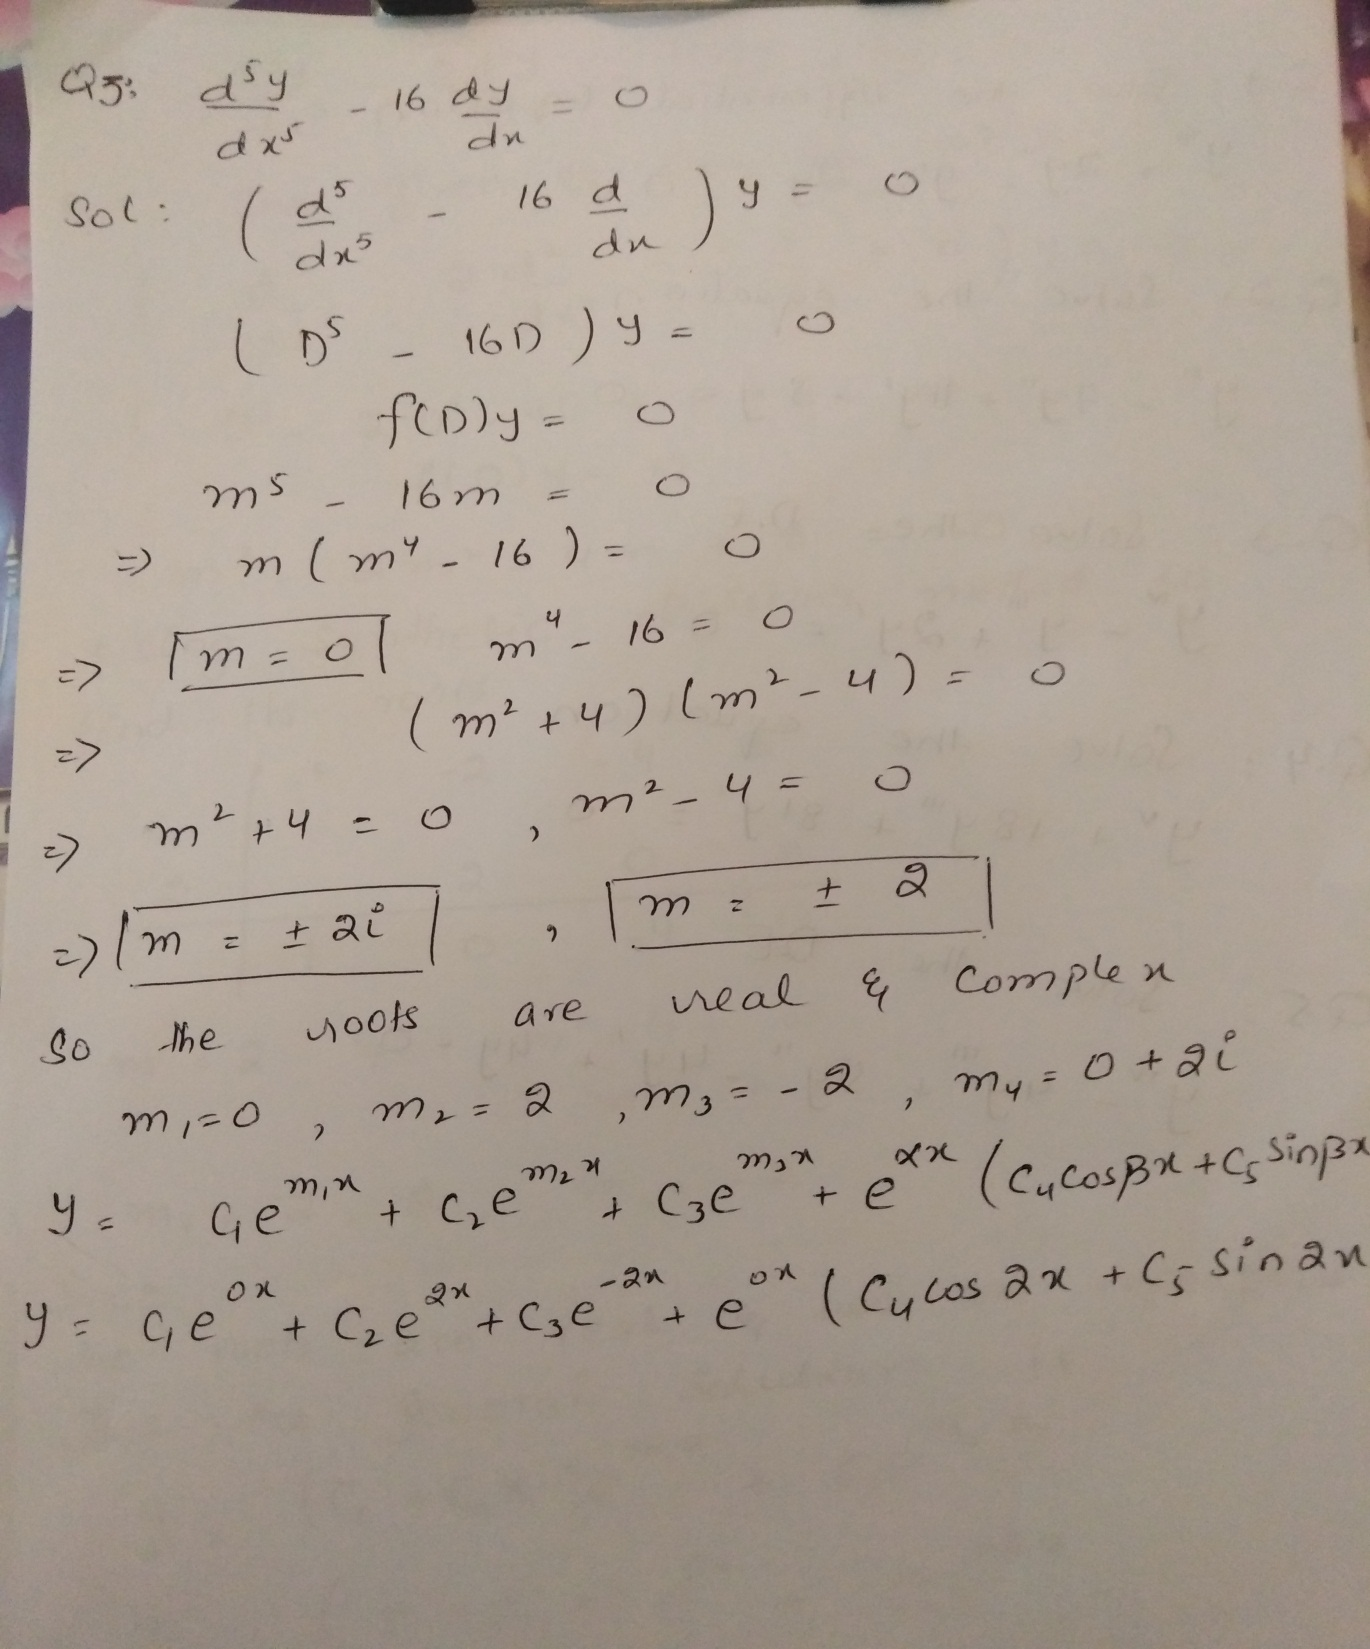 Q5: d⁵y/dx⁵ - 16 dy/dx = 0
Sol: (d⁵/dx⁵ - 16 d/dx) y = 0
(D⁵ - 16D) y = 0
f(D)y = 0
m⁵ - 16m = 0
=> m(m⁴ - 16) = 0
=> m = 0 m⁴ - 16 = 0
=> (m² + 4)(m² - 4) = 0
=> m² + 4 = 0 , m² - 4 = 0
=> m = ± 2i , m = ± 2
So the roots are real & complex
m₁ = 0 , m₂ = 2 , m₃ = -2 , m₄ = 0 + 2i
y = C₁e^m₁x + C₂e^m₂x + C₃e^m₃x + e^αx (C₄cosβx + C₅ sinβx
y = C₁e^0x + C₂e^2x + C₃e^-2x + e^0x (C₄cos 2x + C₅ sin 2x